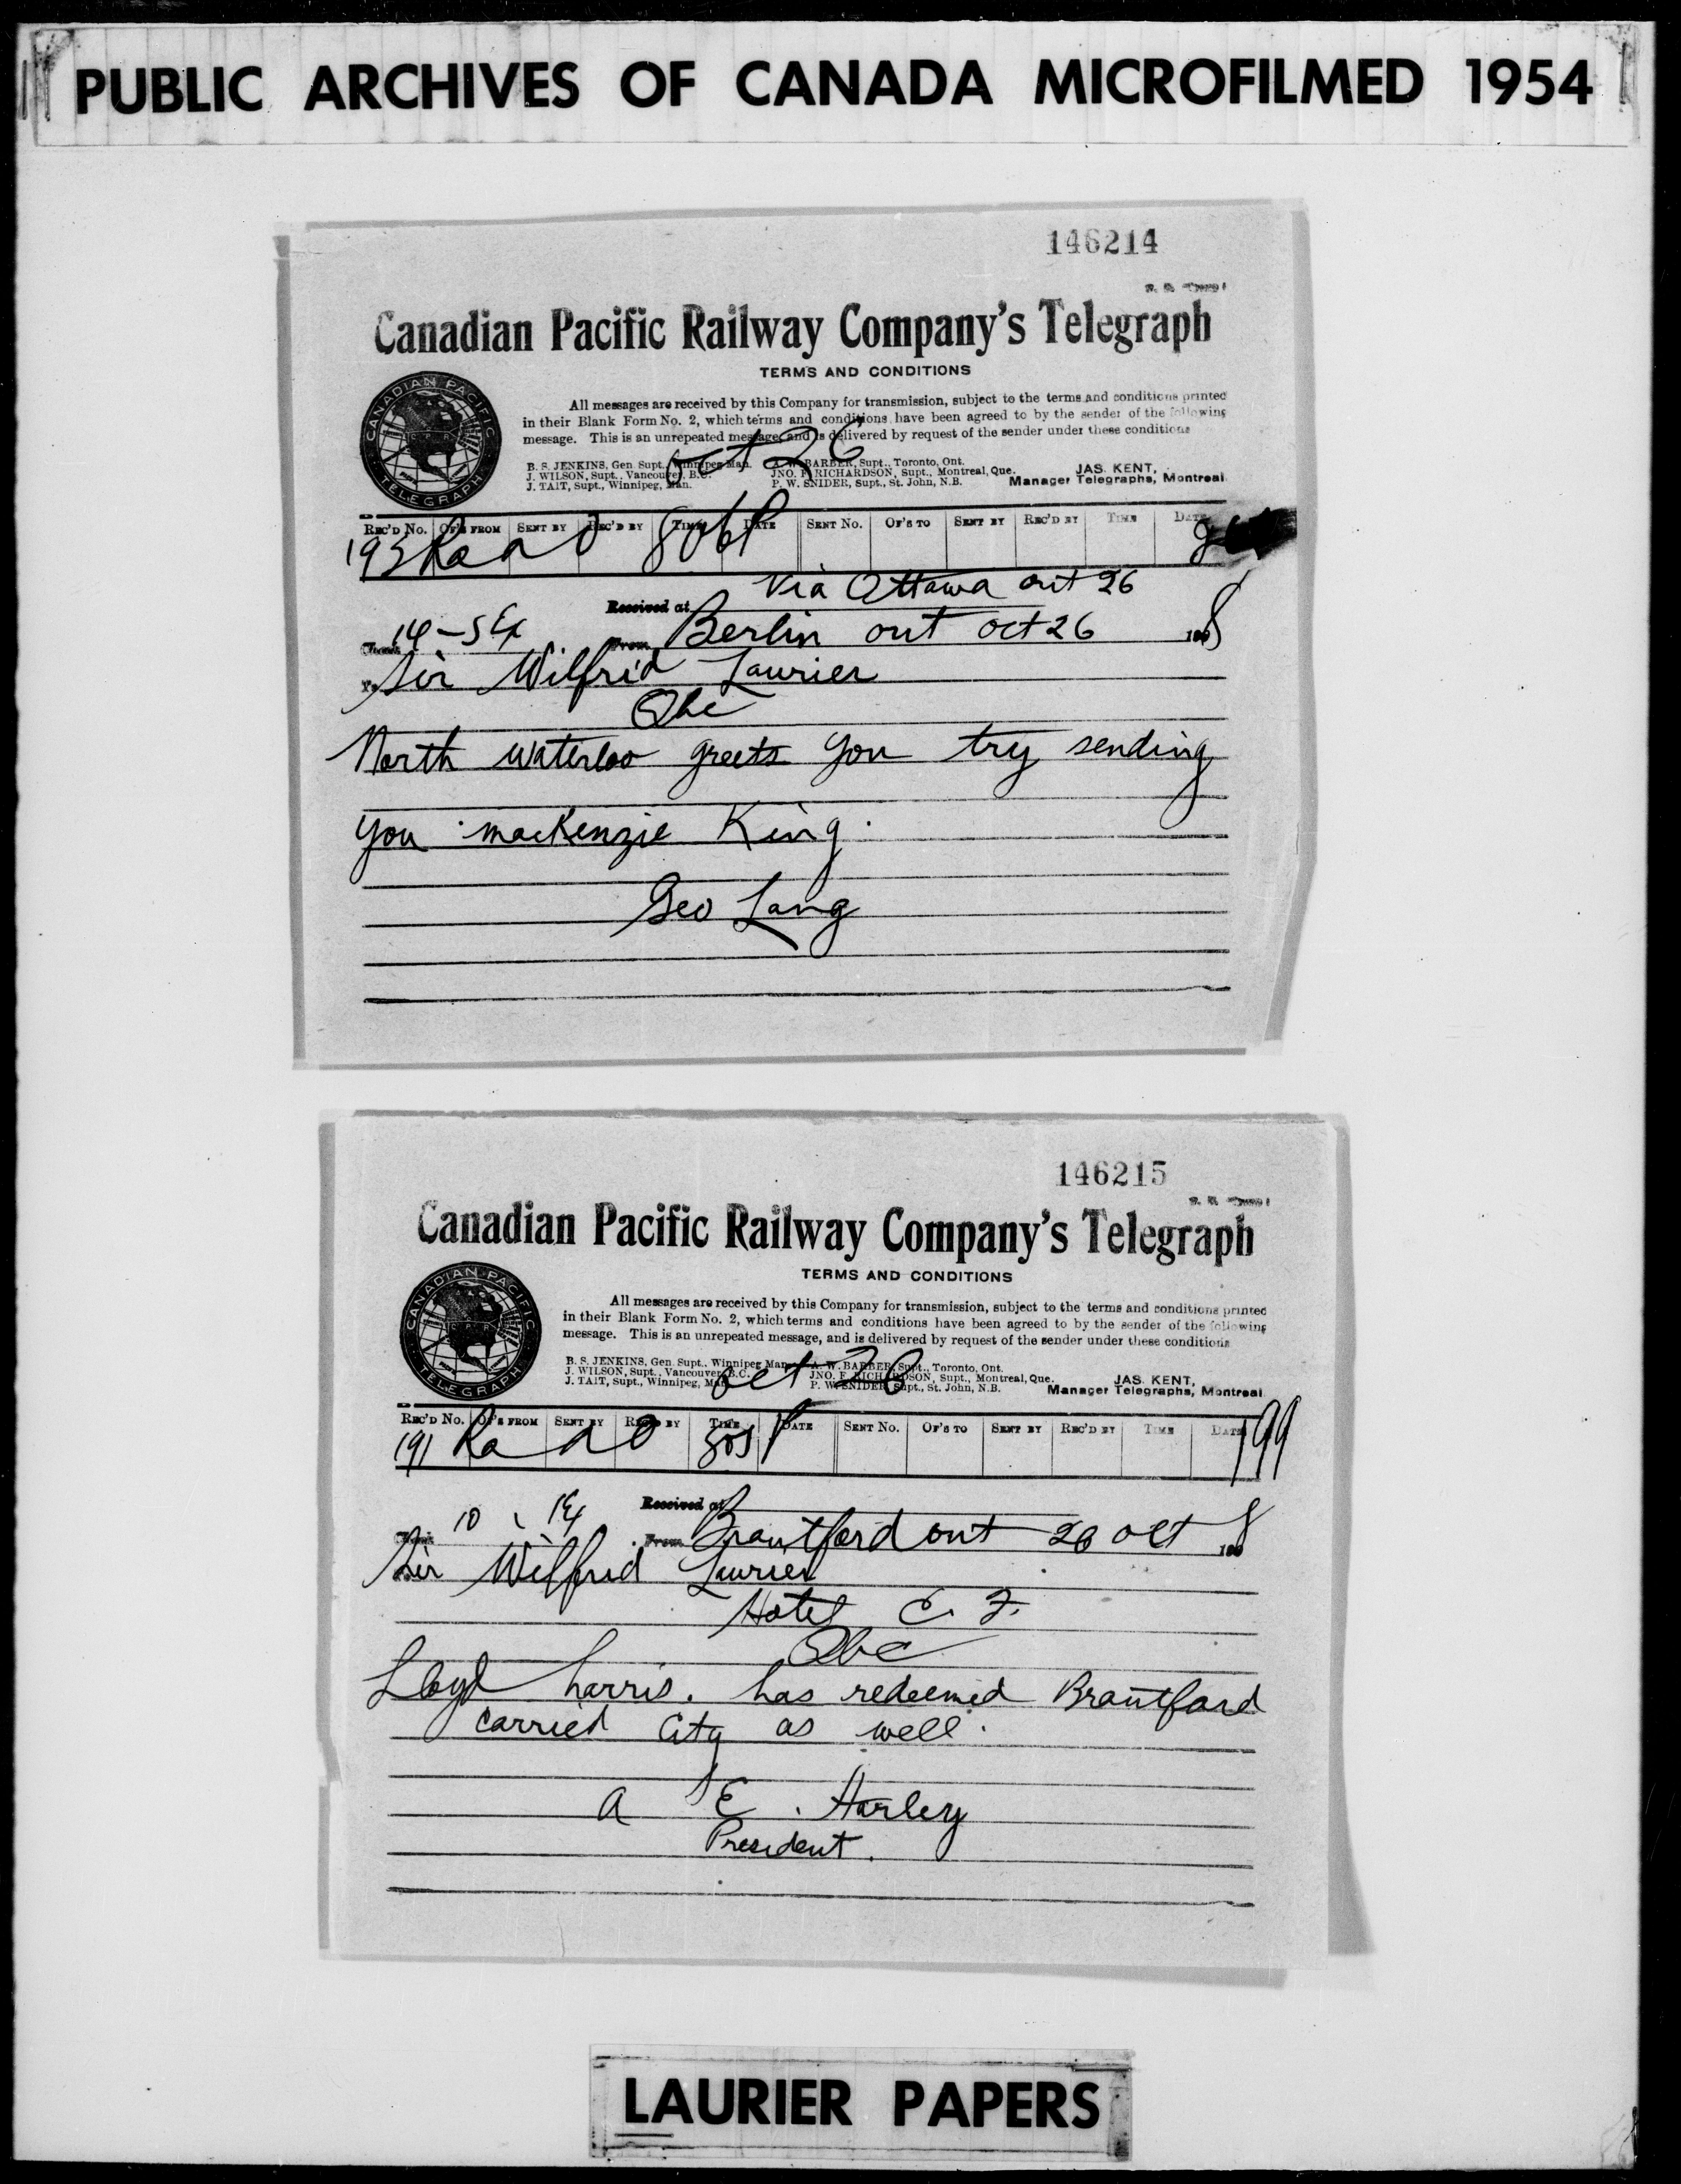 PUBLIC ARCHIVES OF CANADA MICROFILMED 1954
146214
Canadian Pacific Railway Company's Telegraph
TERMS AND CONDITIONS
All messages are received by this Company for transmission, subject to the terms and conditions printed
in their Blank Form No. 2, which terms and conditions have been agreed to by the sender of the following
message. This is an unrepeated message, and is delivered by request of the sender under these conditions
oct 26
B. S. JENKINS, Gen. Supt., Winnipeg Man. A. W. BARBER, Supt., Toronto, Ont.
J. WILSON, Supt., Vancouver, B.C. JNO. F. RICHARDSON, Supt., Montreal, Que. JAS. KENT,
J. TAIT, Supt., Winnipeg, Man. P. W. SNIDER, Supt., St. John, N.B. Manager Telegraphs, Montreal
CANADIAN PACIFIC
C.P.R.
TELEGRAPH
REC'D No. OF'S FROM SENT BY REC'D BY TIME DATE SENT No. OF'S TO SENT BY REC'D BY TIME DATE
193 Ra
Via Ottawa ont 26
Received at
14-5 Ex From Berlin ont oct 26 190 8
To Sir Wilfrid Laurier
Qbc
North Waterloo greets you try sending
you mackenzie King.
Geo Lang
146215
Canadian Pacific Railway Company's Telegraph
TERMS AND CONDITIONS
All messages are received by this Company for transmission, subject to the terms and conditions printed
in their Blank Form No. 2, which terms and conditions have been agreed to by the sender of the following
message. This is an unrepeated message, and is delivered by request of the sender under these conditions
oct 26
B. S. JENKINS, Gen. Supt., Winnipeg Man. A. W. BARBER, Supt., Toronto, Ont.
J. WILSON, Supt., Vancouver, B.C. JNO. F. RICHARDSON, Supt., Montreal, Que. JAS. KENT,
J. TAIT, Supt., Winnipeg, Man. P. W. SNIDER, Supt., St. John, N.B. Manager Telegraphs, Montreal
CANADIAN PACIFIC
C.P.R.
TELEGRAPH
REC'D No. OF'S FROM SENT BY REC'D BY TIME DATE SENT No. OF'S TO SENT BY REC'D BY TIME DATE
191 Ra 199
Received at
10 From Brantford ont 26 oct 190 8
Sir Wilfrid Laurier
Hotel C. F.
Qbc
Lloyd harris. has redeemed Brantford
carried City as well.
a E. Harley
President.
LAURIER PAPERS